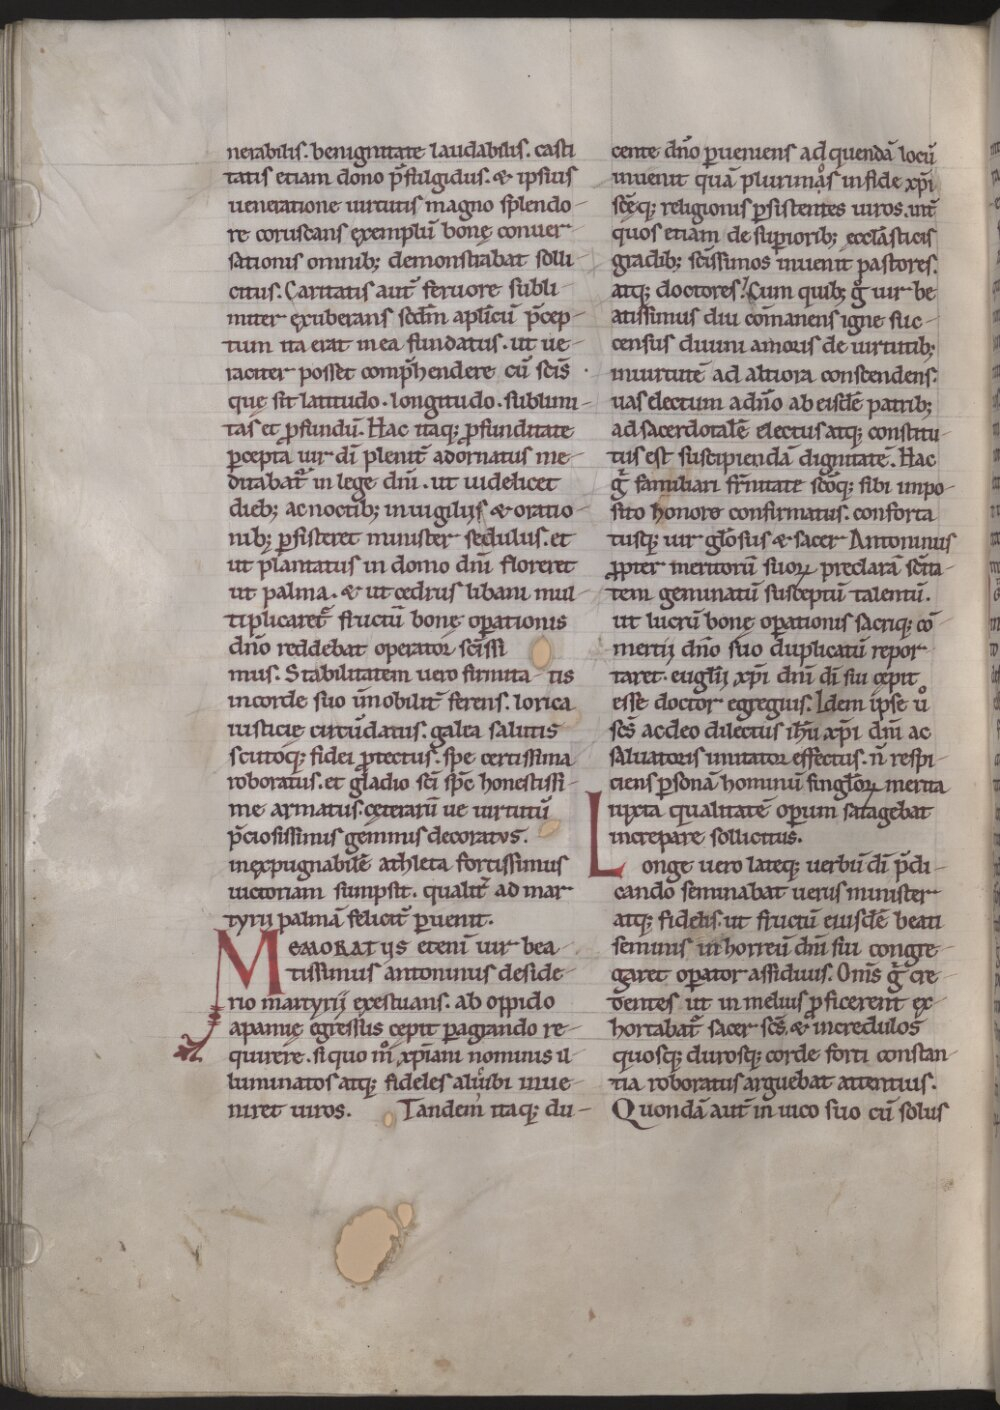 nerabilis. benignitate laudabilis. casti
tatis etiam dono p̄fulgidus. & ipsius
ueneratione uirtutis magno splendo-
re coruscans exemplū bonę conuer-
sationis omnib; demonstrabat solli
citus. Caritatis aut̄ feruore subli-
miter ęxuberans scd̄m apl̄icū p̄cep-
tum ita erat in ea fundatus. ut ue-
raciter posset comp̄hendere cū scīs
quę sit latitudo. longitudo. sublimi-
tas et ꝓfundū. Hac itaq; ꝓfunditate
ꝑcepta uir dī plenit̄ adornatus me-
ditabat᷑ in lege dn̄i. ut uidelicet
dieb; ac noctib; in uigilijs & oratio-
nib; ꝑsisteret minister sedulus. et
ut plantatus in domo dn̄i floreret
ut palma. & ut cedrus libani mul-
tiplicaret᷑ fructū bonę oꝑationis
dn̄o reddebat operator sc̄issi
mus. Stabilitatem uero firmita-tis
in corde suo im̄obilit̄ ferens. lorica
iusticię circūdatus. galea salutis
scutoq; fidei ꝓtectus. spe certissima
roboratus. et gladio sc̄i sp̄c honestissi-
me armatus. cęterarū ue uirtutū
p̄ciosissimus gemmis decoratvs.
inexpugnabilē athleta fortissimus
uictoriam sumpsit. qualit̄ ad mar
tyrii palmā felicit̄ ꝑuenit.
MEMORATIJS etenī uir bea-
tissimus antoninus deside-
rio martyrij exestuans. ab oppido
apamię egressus cępit ꝑagrando re-
quirere. si quo mͦ xp̄iani nominis il-
luminatos atq; fideles aliͧbi inue-
niret uiros. Tandem itaq; du-
cente dn̄o ꝑueniens ad quendā locū
inuenit quā plurimͦas in fide xp̄i
scęq; religionis ꝑsistentes uiros. int̄
quos etiam de suꝑiorib; ęccl̄asticis
gradib; sc̄issimos inuenit pastores.
atq; doctores. Cum quib; g̊ uir be
atissimus diu com̄anens igne suc-
census diuini amoris de uirtutib;
in uirtutē ad altiora conscendens.
uas electum a dn̄o ab eisdē patrib;
ad sacerdotalē electus atq; constitu-
tus est suscipiendā dignitatē. Hac
g̊ familiari fr̄nitate scōq; sibi impo-
sito honore confirmatus. conforta
tusq; uir gl̄osus & sacer Antoninus
ꝓpter meritorū suoꝝ preclarā sc̄ita-
tem geminatū susceptū talentū.
ut lucrū bonę oꝑationis sacriq; cō-
mertij dn̄o suo duplicatū repor
taret. eugl̄ij xp̄i dn̄i dī sui cępit
esse doctor egregius. Idem ipse uͦ
sc̄s ac deo dilectus ih̄u xp̄i dn̄i ac
saluatoris imitator effectus. n̄ respi-
ciens ꝑsonā hominū singl̄oꝝ merita
iuxta qualitatē oꝑum satagebat
increpare sollicitus.
Longe uero lateq; uerbū dī p̄di-
cando seminabat uerus minister
atq; fidelis. ut fructū eiusdē beati
seminis in horreū dn̄i sui congre-
garet oꝑator assiduus. Om̄s g̊ cre-
dentes ut in melius ꝓficerent ex-
hortabat᷑ sacer sc̄s, & incredulos
quosq; durosq; corde forti constan-
tia roboratus arguebat attentius.
Quondā aut̄ in uico suo cū solus